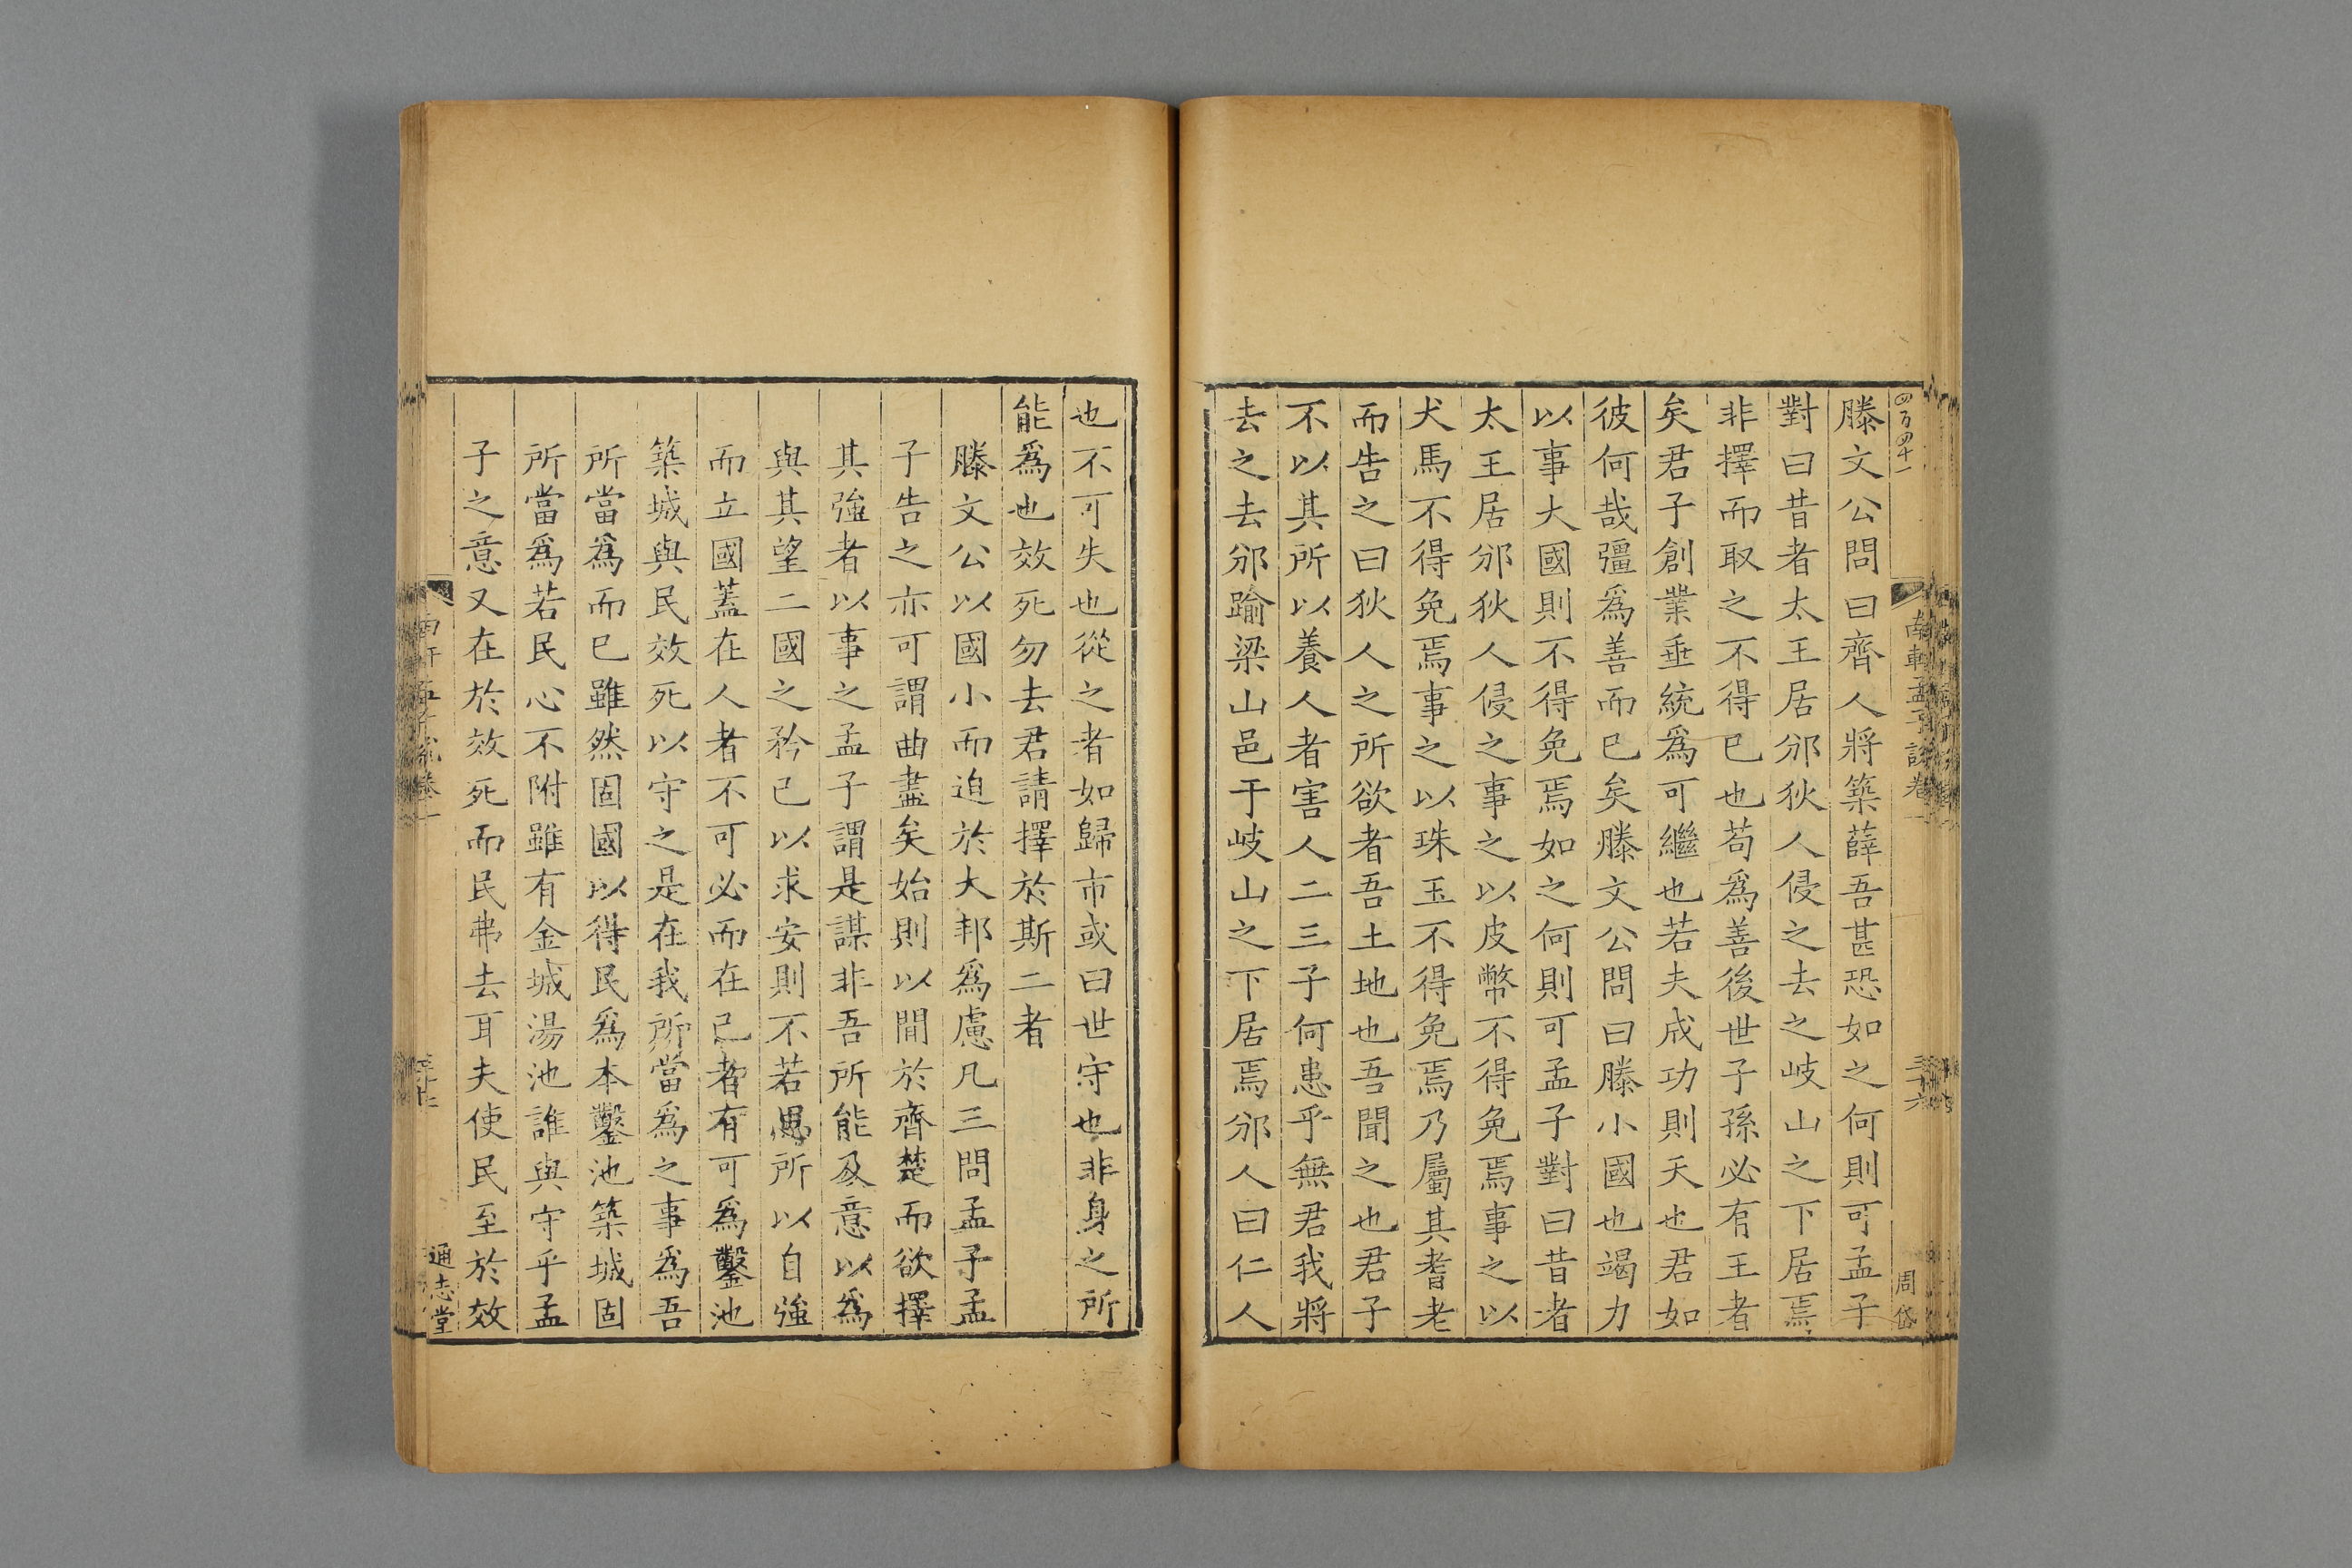 四百四十一
南軒孟子說卷一
三十六
周岱
滕文公問曰齊人將築薛吾甚恐如之何則可孟子
對曰昔者太王居邠狄人侵之去之岐山之下居焉
非擇而取之不得已也苟爲善後世子孫必有王者
矣君子創業垂統爲可繼也若夫成功則天也君如
彼何哉彊爲善而已矣滕文公問曰滕小國也竭力
以事大國則不得免焉如之何則可孟子對曰昔者
太王居邠狄人侵之事之以皮幣不得免焉事之以
犬馬不得免焉事之以珠玉不得免焉乃屬其耆老
而告之曰狄人之所欲者吾土地也吾聞之也君子
不以其所以養人者害人二三子何患乎無君我將
去之去邠踰梁山邑于岐山之下居焉邠人曰仁人
也不可失也從之者如歸市或曰世守也非身之所
能爲也效死勿去君請擇於斯二者
滕文公以國小而迫於大邦爲慮凡三問孟子孟
子告之亦可謂曲盡矣始則以間於齊楚而欲擇
其強者以事之孟子謂是謀非吾所能及意以爲
與其望二國之矜已以求安則不若愚所以自強
而立國蓋在人者不可必而在己者有可爲鑿池
築城與民效死以守之是在我所當爲之事爲吾
所當爲而已雖然固國以得民爲本鑿池築城固
所當爲若民心不附雖有金城湯池誰與守乎孟
子之意又在於效死而民弗去耳夫使民至於效
通志堂